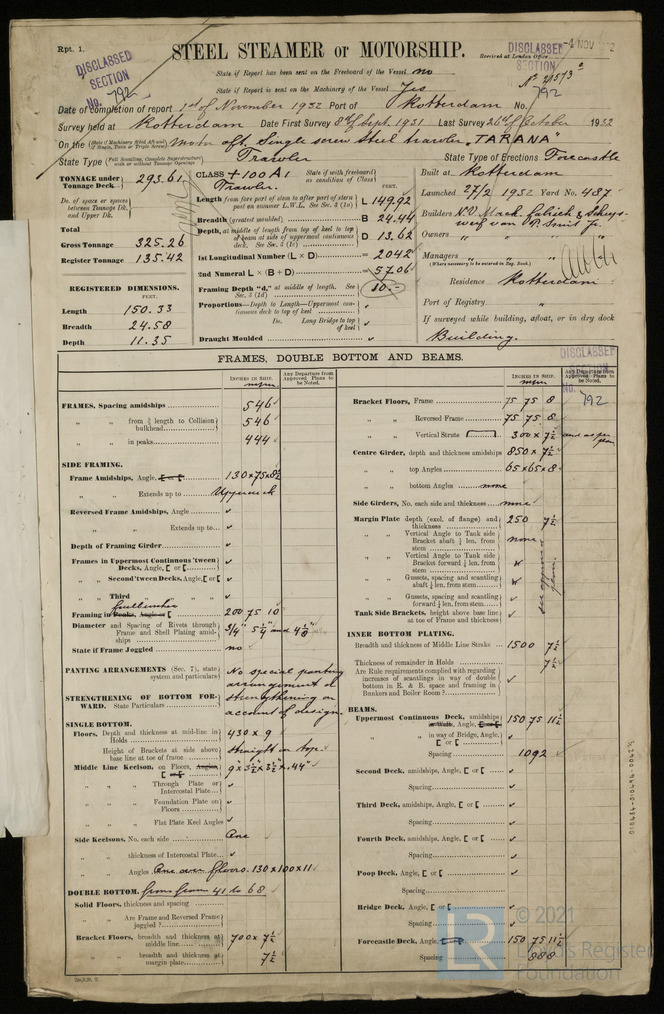 Rpt. 1.
DISCLASSED
SECTION
No. 792
STEEL STEAMER or MOTORSHIP.
DISCLASSED
SECTION
792
-4 NOV
Received at London Office
State if Report has been sent on the Freeboard of the Vessel no
State if Report is sent on the Machinery of the Vessel Yes
Date of completion of report 1st of November 1932 Port of Rotterdam No.
Survey held at Rotterdam Date First Survey Sept. 1931 Last Survey 26th of October 1932
On the Motor aft. Single screw Steel trawler "TARANA"
State Type Trawler State Type of Erections Forecastle
TONNAGE under Tonnage Deck 293.61
Do. of space or spaces between Tonnage Dk. and Upper Dk.
Total
Gross Tonnage 325.26
Register Tonnage 135.42
REGISTERED DIMENSIONS.
FEET.
Length 150.33
Breadth 24.58
Depth 11.35
CLASS +100A1 State if with freeboard as condition of Class
Trawler.
FEET.
Length from fore part of stem to after part of stern post on summer L.W.L. See Sec. 3 (1a) L 149.92
Breadth (greatest moulded) B 24.44
Depth, at middle of length from top of keel to top of beam at side of uppermost continuous deck. See Sec. 3 (1c) D 13.62
1st Longitudinal Number (L × D) = 2042
2nd Numeral L × (B + D) = 5706
Framing Depth "d," at middle of length. See Sec. 3 (1d) 10.
Proportions—Depth to Length—Uppermost continuous deck to top of keel
Do. Long Bridge to top of keel
Draught Moulded
Built at Rotterdam
Launched 27/2 1932 Yard No. 487
Builders N.V. Mach. fabriek & Scheepswerf van P. Smit Jr.
Owners " " "
Managers " " "
(Where necessary to be entered in Reg. Book.)
Residence Rotterdam
Port of Registry "
If surveyed while building, afloat, or in dry dock
Building.
FRAMES, DOUBLE BOTTOM AND BEAMS.
DISCLASSED
No. 792
INCHES IN SHIP.
Any Departure from Approved Plans to be Noted.
FRAMES, Spacing amidships 546
" " from ⅗ length to Collision bulkhead 546
" " in peaks 444
SIDE FRAMING.
Frame Amidships, Angle, 130×75×8½
" " Extends up to Upperdeck
Reversed Frame Amidships, Angle
" " Extends up to
Depth of Framing Girder
Frames in Uppermost Continuous 'tween Decks, Angle, [ or [
" " Second 'tween Decks, Angle, [ or [
" " Third " "
Framing in Peaks, Angle or [ 200 75 10
Diameter and Spacing of Rivets through Frame and Shell Plating amidships 3/4" 5¼" and 4⅛"
State if Frame Joggled no
PANTING ARRANGEMENTS (Sec. 7), state system and particulars No special panting arrangement &
STRENGTHENING OF BOTTOM FORWARD. State Particulars strengthening on account of design.
SINGLE BOTTOM.
Floors, Depth and thickness at mid-line in Holds 430 × 9
Height of Brackets at side above base line at toe of frame straight on top.
Middle Line Keelson, on Floors, Angles, [ or [ 9"×3½"×3½"×.44"
" " Through Plate or Intercostal Plate
" " Foundation Plate on Floors
" " Flat Plate Keel Angles
Side Keelsons, No. each side One
" " thickness of Intercostal Plate
" " Angles One over floors. 130×100×11
DOUBLE BOTTOM. from frame 41 to 68
Solid Floors, thickness and spacing
" " Are Frame and Reversed Frame joggled?
Bracket Floors, breadth and thickness at middle line 700 × 7½
" " breadth and thickness at margin plate 7½
INCHES IN SHIP.
Any Departure from Approved Plans to be Noted.
Bracket Floors, Frame 75 75 8
" " Reversed Frame 75 75 8
" " Vertical Struts 300 × 7½ and as per plan
Centre Girder, depth and thickness amidships 850 × 7½
" " top Angles 65×65×8
" " bottom Angles none
Side Girders, No. each side and thickness none
Margin Plate depth (excl. of flange) and thickness 250 7½
" " Vertical Angle to Tank side Bracket abaft ¼ len. from stem none
" " Vertical Angle to Tank side Bracket forward ¼ len. from stem
" " Gussets, spacing and scantling abaft ¼ len. from stem
" " Gussets, spacing and scantling forward ¼ len. from stem
see approved plan.
Tank Side Brackets, height above base line at toe of Frame and thickness
INNER BOTTOM PLATING.
Breadth and thickness of Middle Line Strake 1500 7½
Thickness of remainder in Holds 7½
Are Rule requirements complied with regarding increases of scantlings in way of double bottom in E. & B. space and framing in Bunkers and Boiler Room?
BEAMS.
Uppermost Continuous Deck, amidships 150 75 11½
" " in way of Bridge, Angle, [ or [
Spacing 1092
Second Deck, amidships, Angle, [ or [
Spacing
Third Deck, amidships, Angle, [ or [
Spacing
Fourth Deck, amidships, Angle, [ or [
Spacing
Poop Deck, Angle, [ or [
Spacing
Bridge Deck, Angle, [ or [
Spacing
Forecastle Deck, Angle, 150 75 11½
Spacing 888
© 2021
Lloyd's Register
Foundation
LR